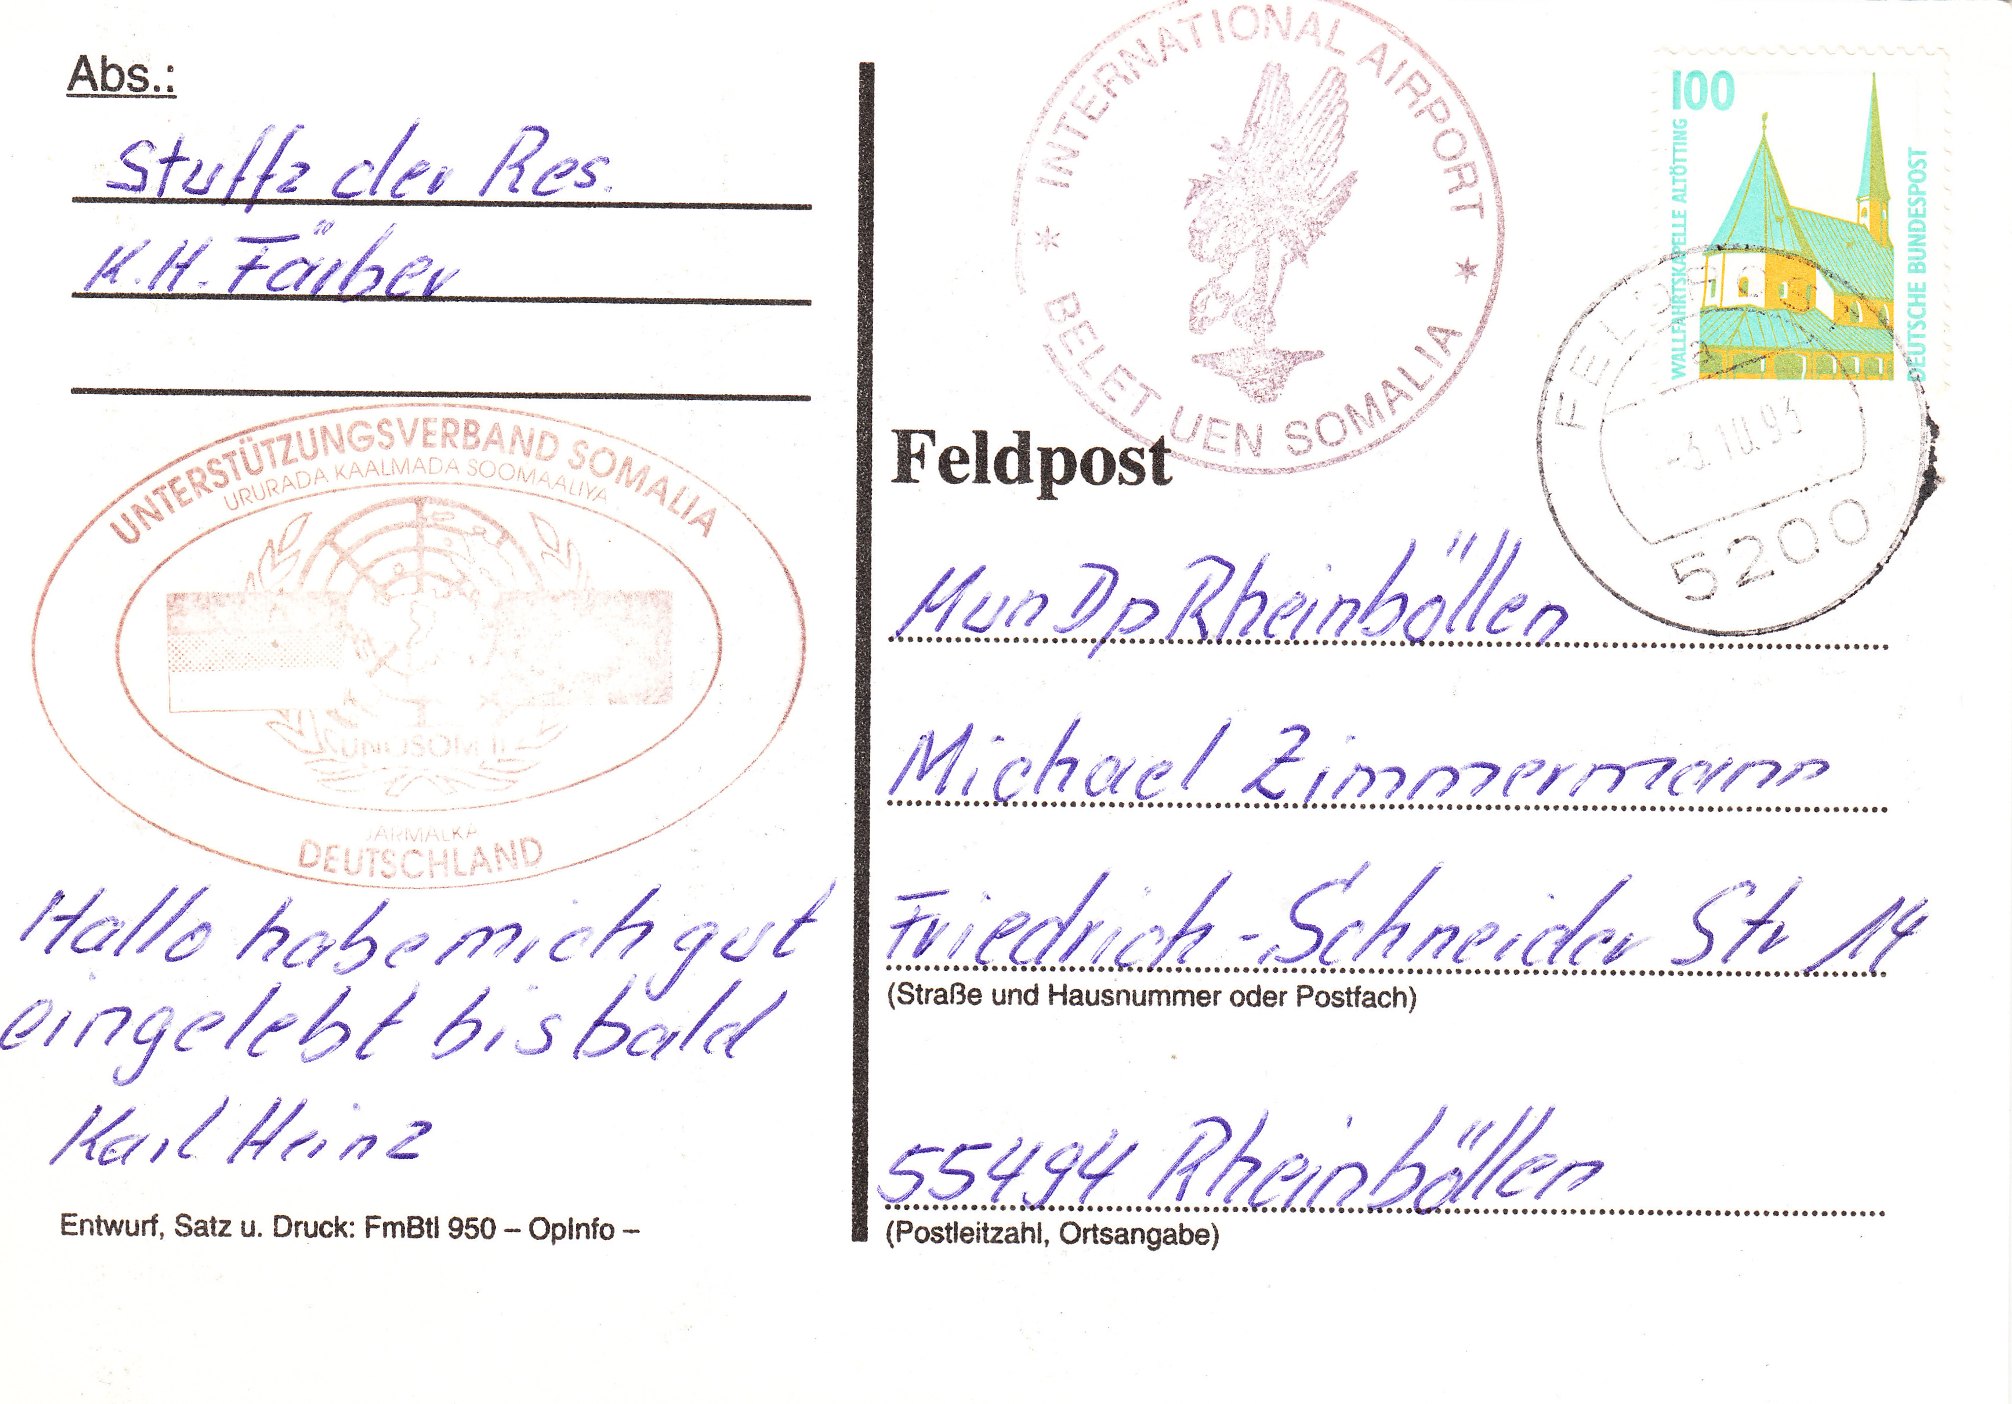 Abs.:
Stuffz der Res.
K.H. Färber
UNTERSTÜTZUNGSVERBAND SOMALIA
URURADA KAALMADA SOOMAALIYA
UNOSOM II
JARMALKA
DEUTSCHLAND
Hallo habe mich gut
eingelebt bis bald
Karl Heinz
Entwurf, Satz u. Druck: FmBtl 950 – OpInfo –
INTERNATIONAL AIRPORT
BELET UEN SOMALIA
100
WALLFAHRTSKAPELLE ALTÖTTING
DEUTSCHE BUNDESPOST
FELDPOST
a
-5.10.93
5200
Feldpost
Mun Dp Rheinböllen
Michael Zimmermann
Friedrich-Schneider Str 14
(Straße und Hausnummer oder Postfach)
55494 Rheinböllen
(Postleitzahl, Ortsangabe)